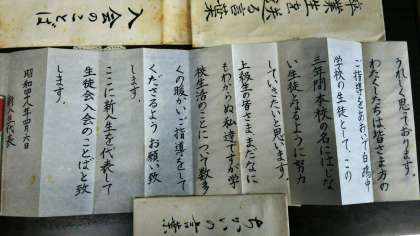 卒業生を送る言葉
入会のことば
うれしく思っております。
わたくしたちは皆さま方の
ご指導をあおいで白鴎中
学校の生徒として、この
三年間本校の名にはじな
い生徒になるように努力
していきたいと思います。
上級生の皆さま、まだなに
もわからぬ私達ですが学
校生活のことについて数多
くの暖かいご指導をして
くださるようお願い致
します。
ここに新入生を代表して
生徒会入会のことばと致
します。
昭和四十八年四月六日
新入生代表
ちかいの言葉